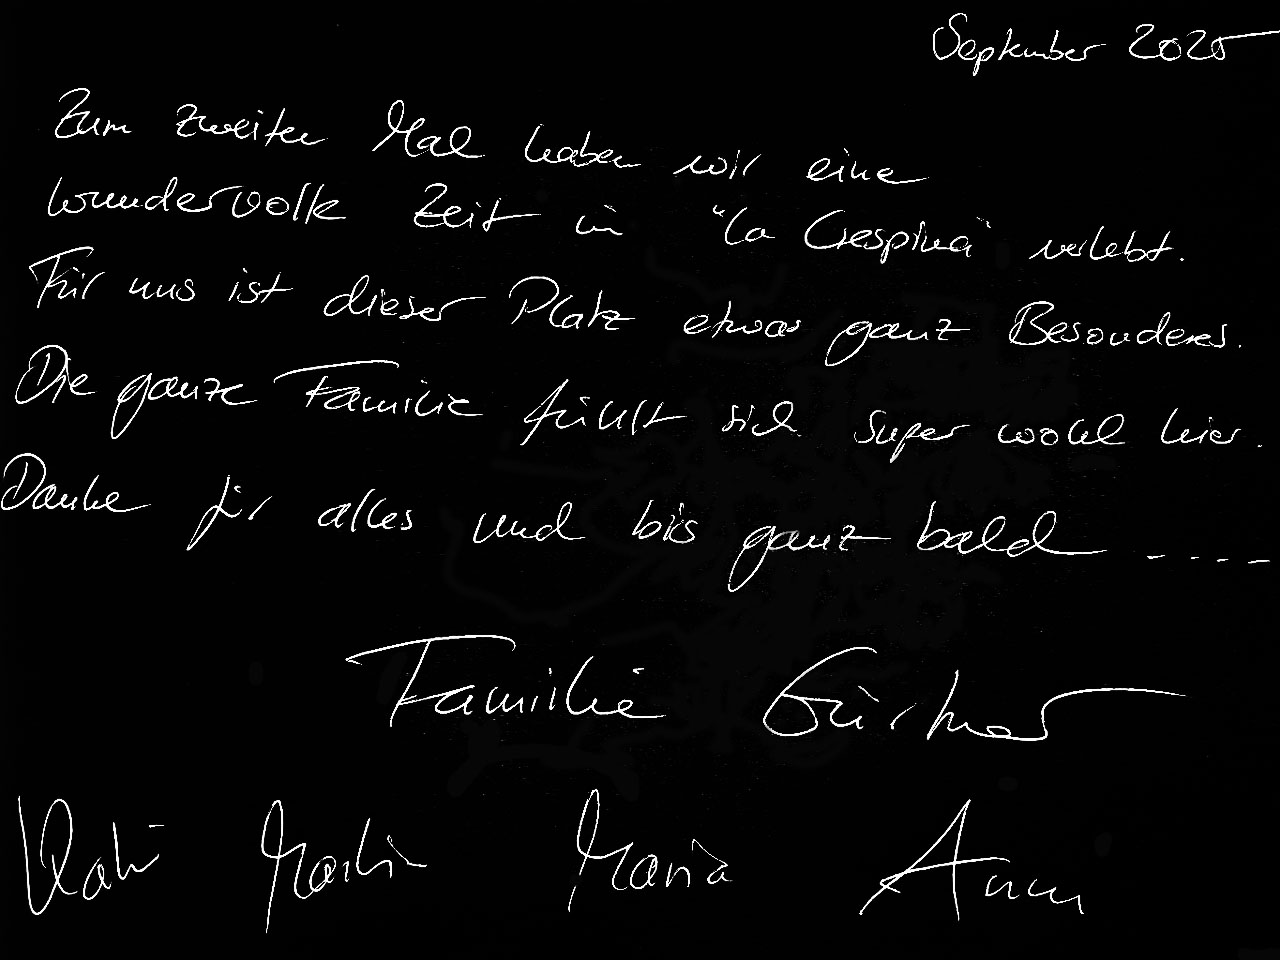 September 2025
Zum zweiten Mal haben wir eine
wundervolle Zeit in "La Crespina" verlebt.
Für uns ist dieser Platz etwas ganz Besonderes.
Die ganze Familie fühlt sich super wohl hier.
Danke für alles und bis ganz bald ----
Familie Gürtner
Kati Martin Maria Anna